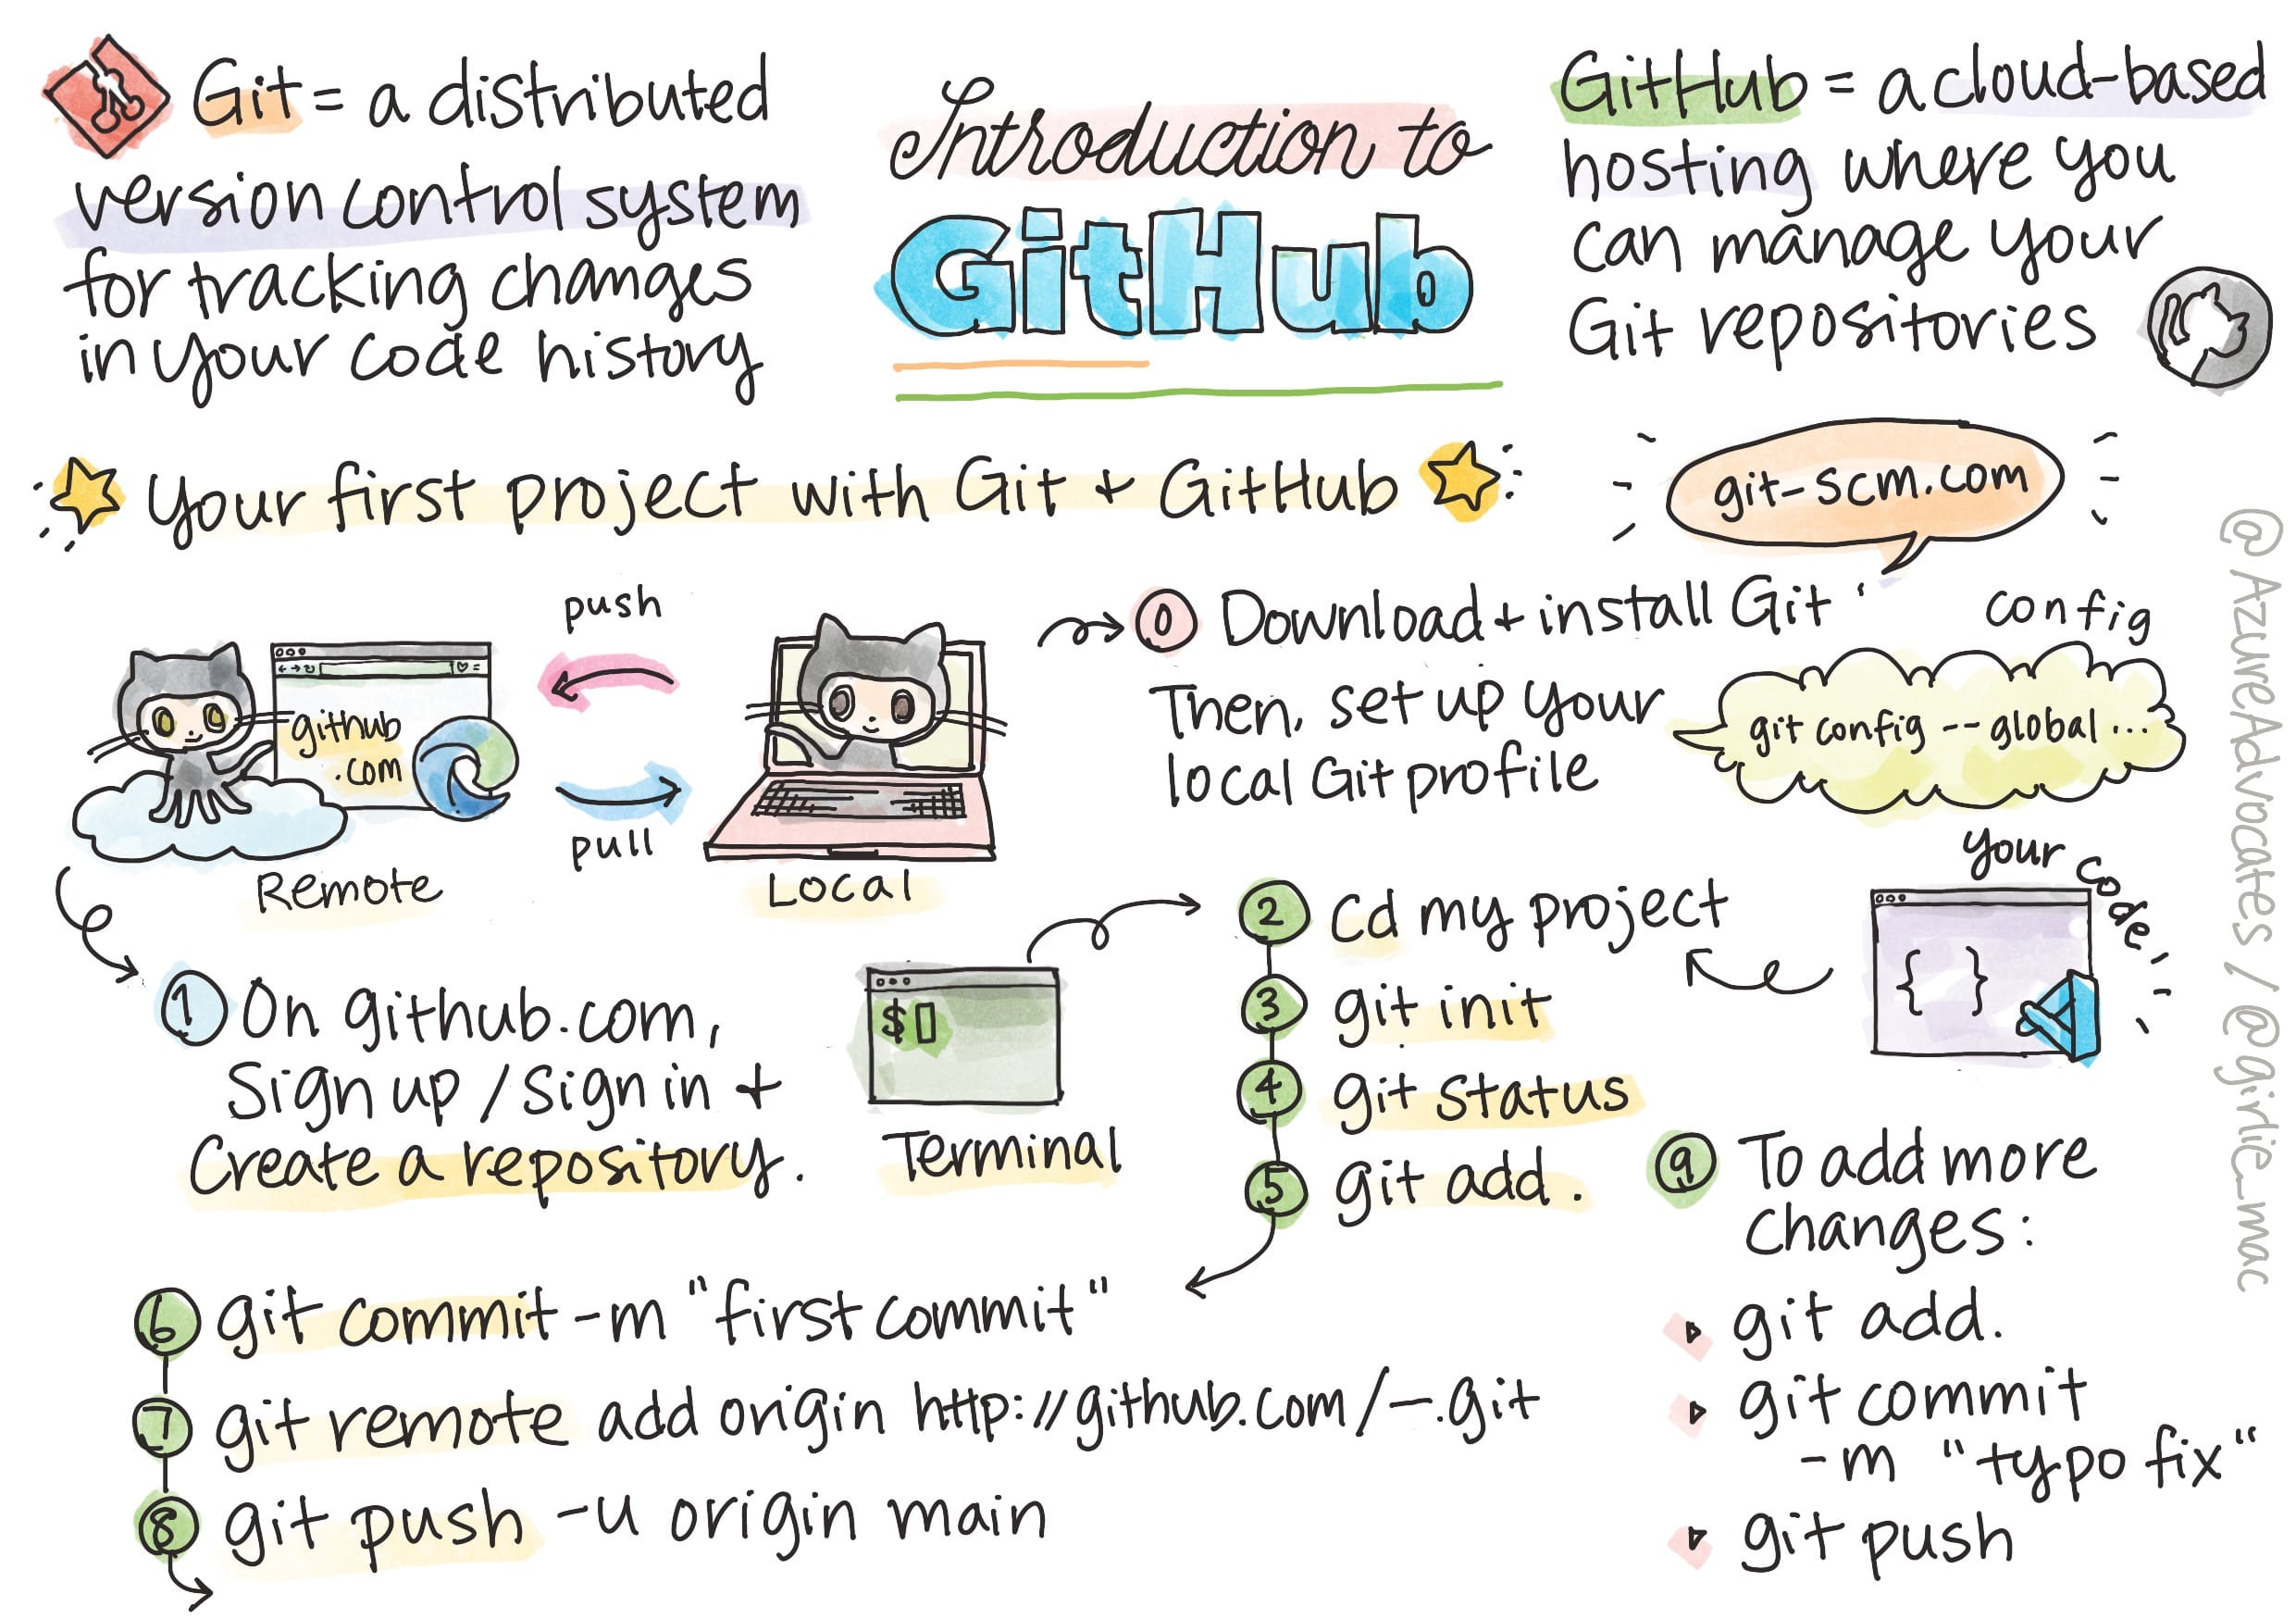 Git = a distributed
version control system
for tracking changes
in your code history
Introduction to
GitHub
GitHub = a cloud-based
hosting where you
can manage your
Git repositories
Your first project with Git + GitHub
git-scm.com
github
.com
Remote
push
pull
Local
0 Download + install Git
Then, set up your
local Git profile
config
git config --global ...
1 On github.com,
Sign up / Sign in +
Create a repository.
$
Terminal
2 cd my project
3 git init
4 git status
5 git add .
your code
{ }
6 git commit -m "first commit"
7 git remote add origin http://github.com/~.git
8 git push -u origin main
9 To add more
changes:
git add.
git commit
-m "typo fix"
git push
@AzureAdvocates / @girlie_mac